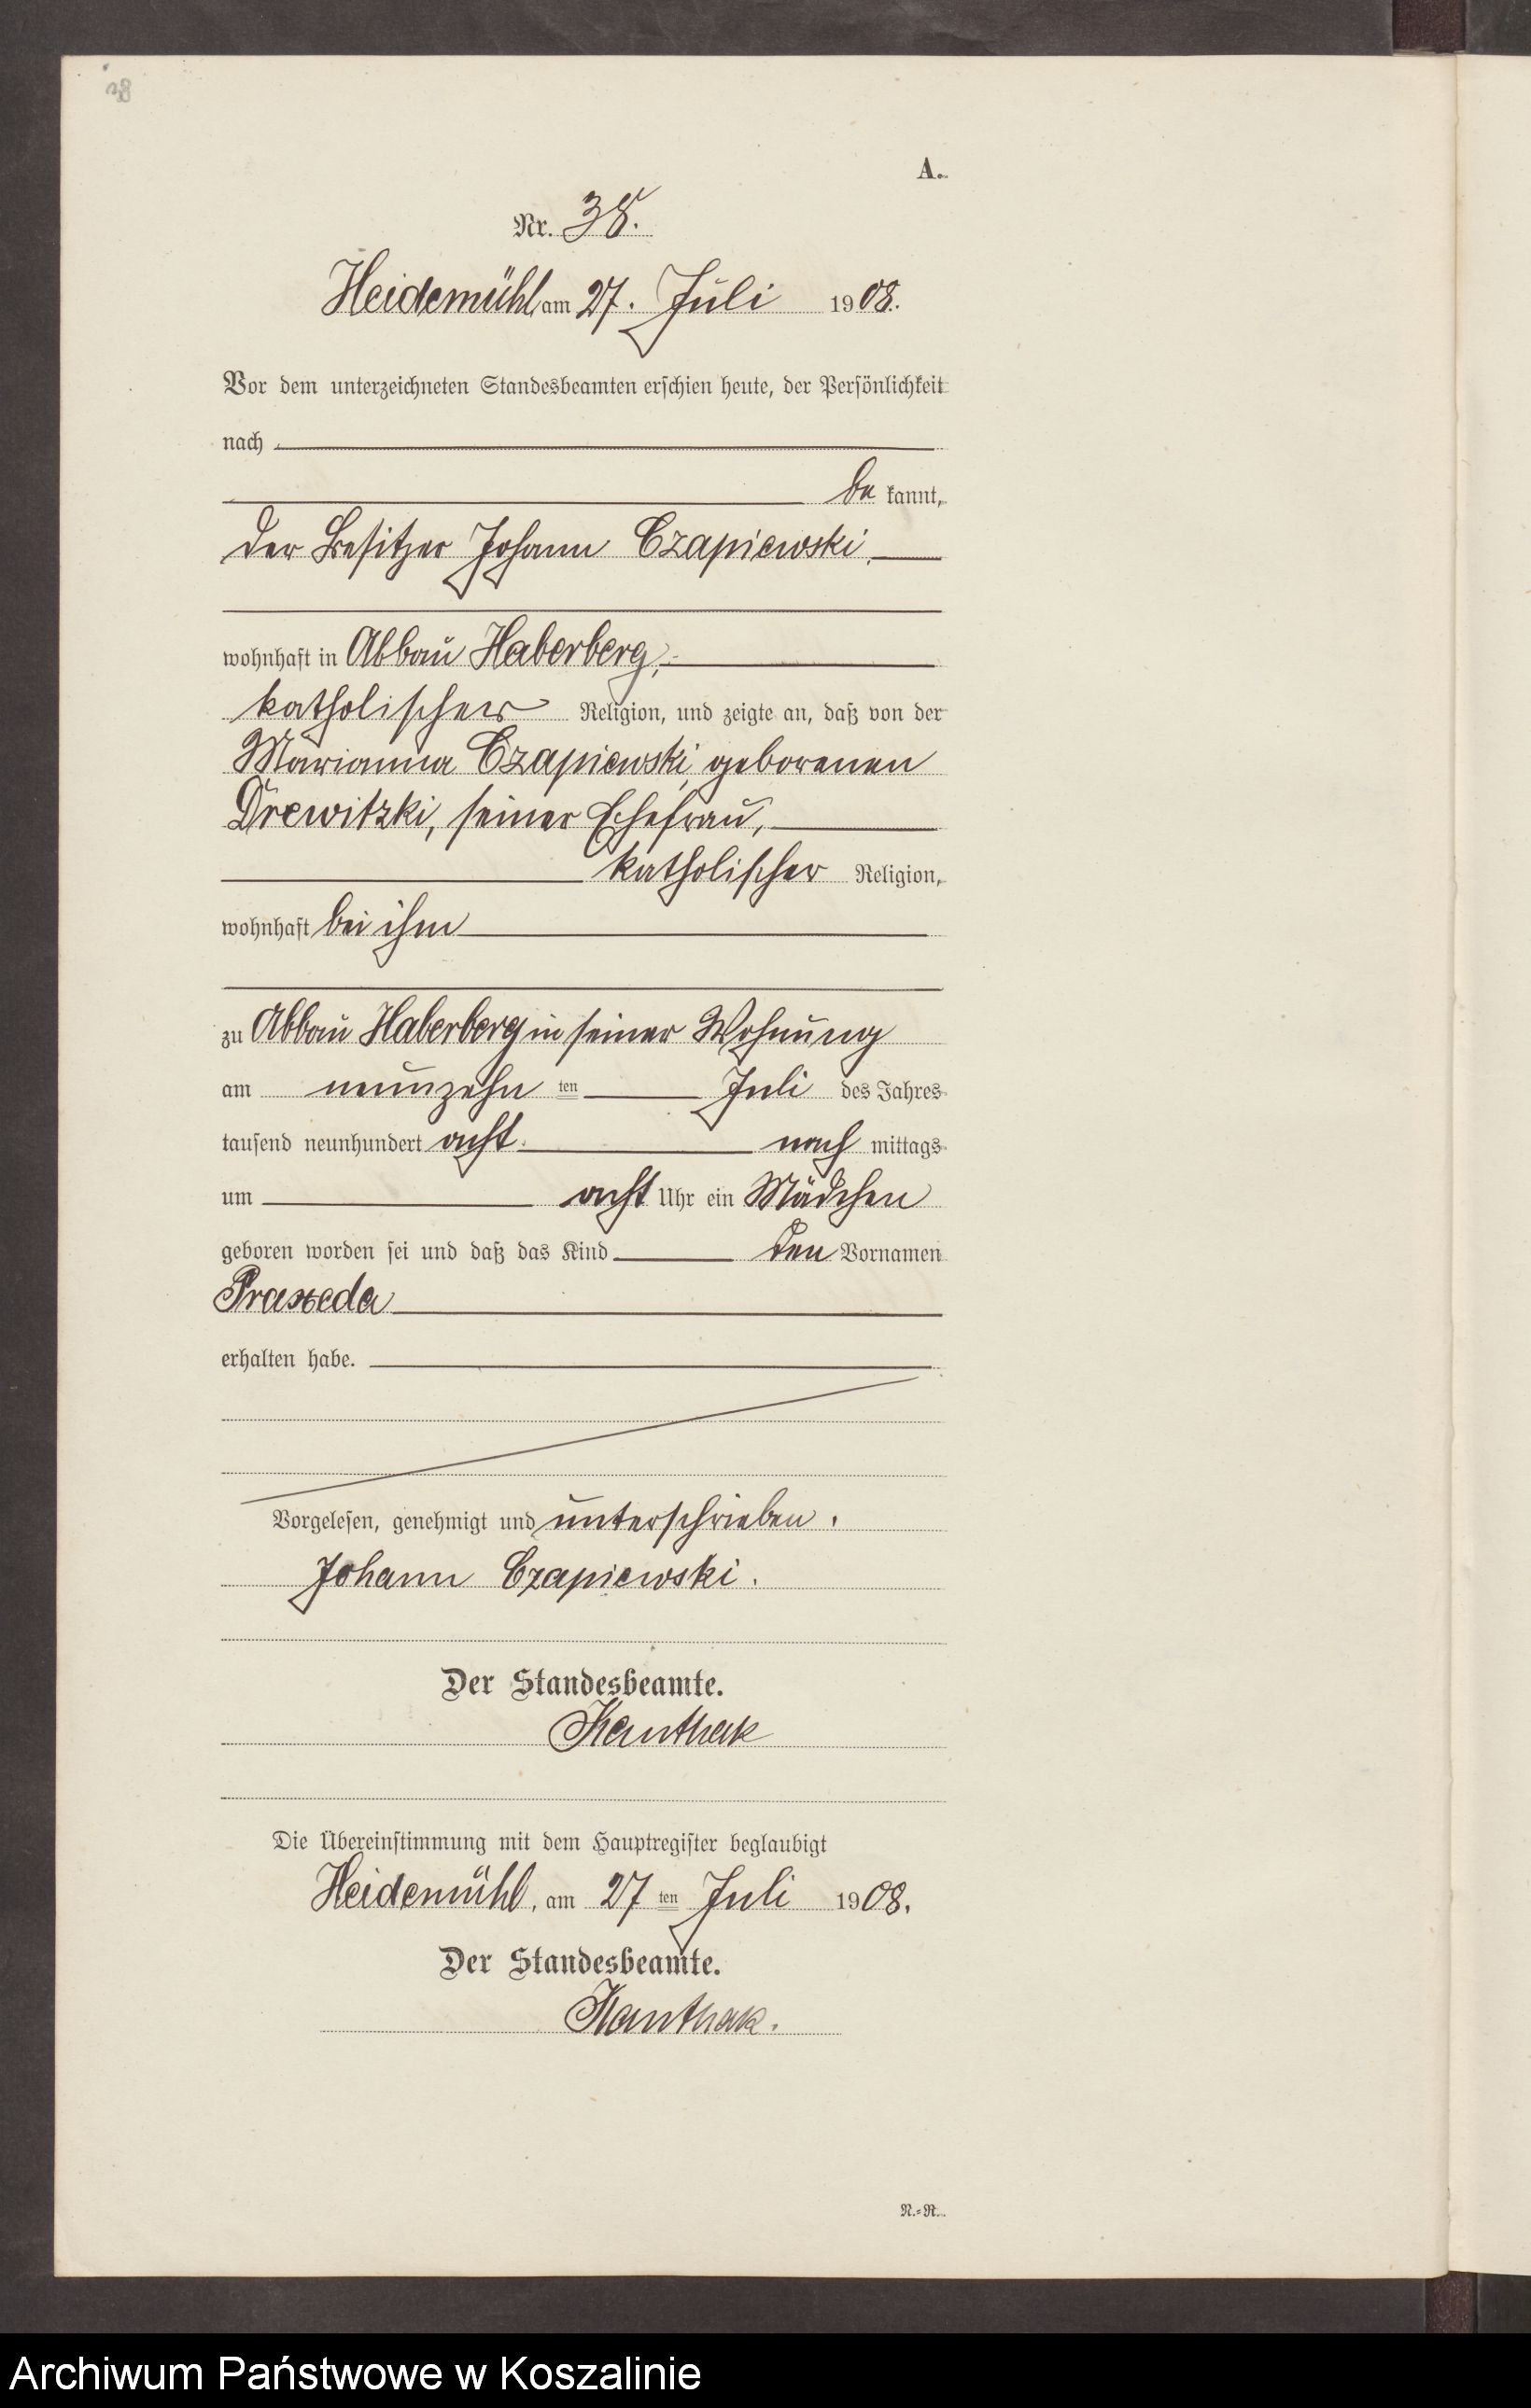 38
A.
Nr. 38.
Heidemühl, am 27. Juli 1908.
Vor dem unterzeichneten Standesbeamten erschien heute, der Persönlichkeit
nach
be kannt,
der Besitzer Johann Czapiewski,
wohnhaft in Abbau Haberberg,
katholischer Religion, und zeigte an, daß von der
Marianna Czapiewski, geborenen
Drewitzki, seiner Ehefrau,
katholischer Religion,
wohnhaft bei ihm
zu Abbau Haberberg in seiner Wohnung
am neunzehn ten Juli des Jahres
tausend neunhundert acht nach mittags
um acht Uhr ein Mädchen
geboren worden sei und daß das Kind den Vornamen
Praxeda
erhalten habe.
Vorgelesen, genehmigt und unterschrieben.
Johann Czapiewski.
Der Standesbeamte.
Kanthak
Die Übereinstimmung mit dem Hauptregister beglaubigt
Heidemühl, am 27 ten Juli 1908.
Der Standesbeamte.
Kanthak.
N.=R.
Archiwum Państwowe w Koszalinie